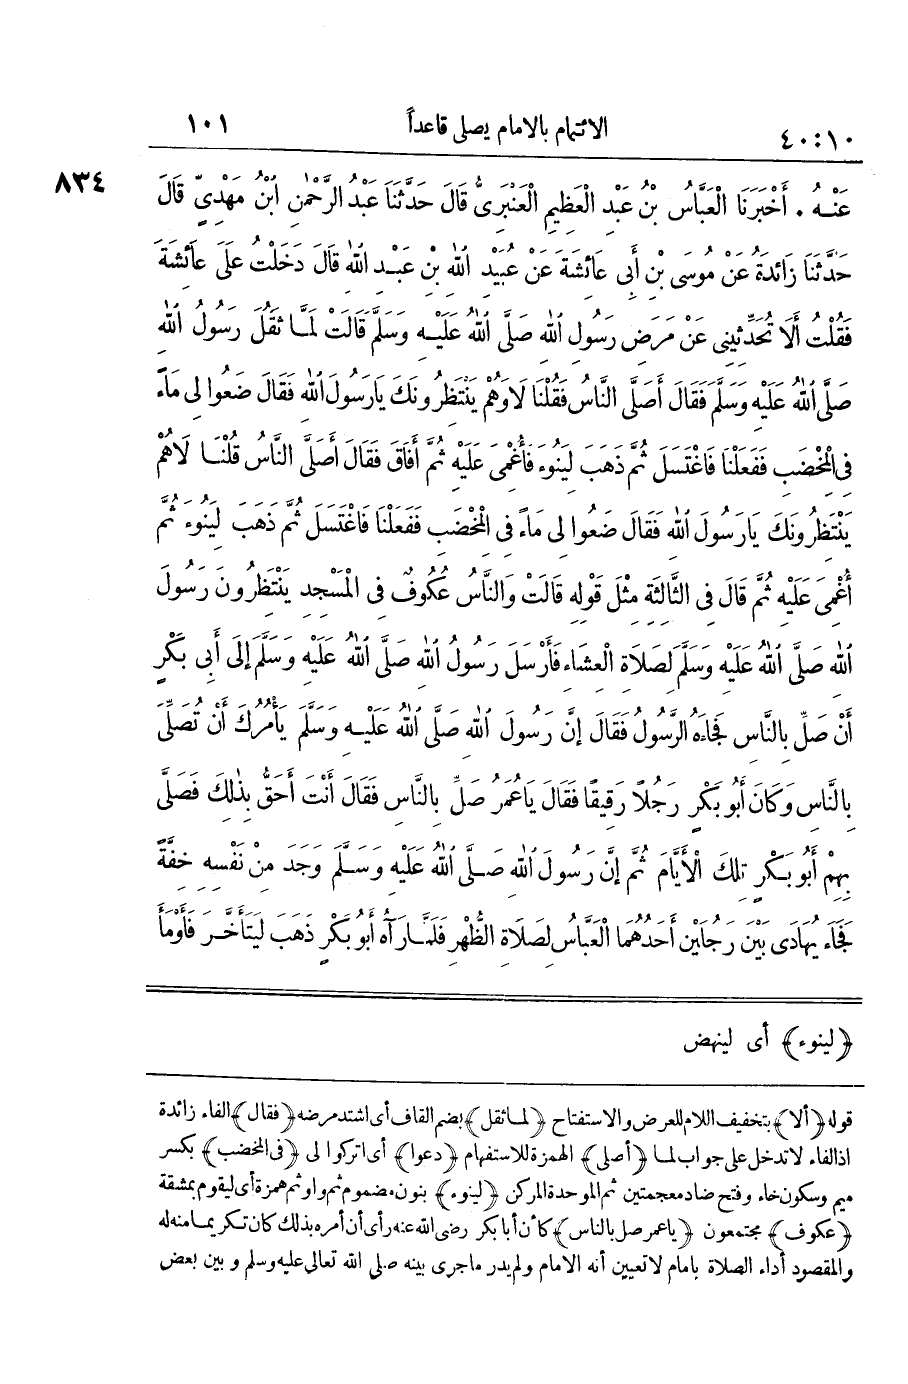 ٤٠:١٠ الائتمام بالامام يصلى قاعداً ١٠١
٨٣٤
عَنْهُ . أَخْبَرَنَا الْعَبَّاسُ بْنُ عَبْدِ الْعَظِيمِ الْعَنْبَرِىُّ قَالَ حَدَّثَنَا عَبْدُ الرَّحْمٰنِ ابْنُ مَهْدِيٍّ قَالَ
حَدَّثَنَا زَائِدَةُ عَنْ مُوسَى بْنِ أَبِى عَائِشَةَ عَنْ عُبَيْدِ اللهِ بْنِ عَبْدِ اللهِ قَالَ دَخَلْتُ عَلَى عَائِشَةَ
فَقُلْتُ أَلَا تُحَدِّثِينِى عَنْ مَرَضِ رَسُولِ اللهِ صَلَّى اللهُ عَلَيْهِ وَسَلَّمَ قَالَتْ لَمَّا ثَقُلَ رَسُولُ اللهِ
صَلَّى اللهُ عَلَيْهِ وَسَلَّمَ فَقَالَ أَصَلَّى النَّاسُ فَقُلْنَا لَا وَهُمْ يَنْتَظِرُونَكَ يَا رَسُولَ اللهِ فَقَالَ ضَعُوا لِى مَاءً
فِى الْمِخْضَبِ فَفَعَلْنَا فَاغْتَسَلَ ثُمَّ ذَهَبَ لِيَنُوءَ فَأُغْمِىَ عَلَيْهِ ثُمَّ أَفَاقَ فَقَالَ أَصَلَّى النَّاسُ قُلْنَا لَا هُمْ
يَنْتَظِرُونَكَ يَا رَسُولَ اللهِ فَقَالَ ضَعُوا لِى مَاءً فِى الْمِخْضَبِ فَفَعَلْنَا فَاغْتَسَلَ ثُمَّ ذَهَبَ لِيَنُوءَ ثُمَّ
أُغْمِىَ عَلَيْهِ ثُمَّ قَالَ فِى الثَّالِثَةِ مِثْلَ قَوْلِهِ قَالَتْ وَالنَّاسُ عُكُوفٌ فِى الْمَسْجِدِ يَنْتَظِرُونَ رَسُولَ
اللهِ صَلَّى اللهُ عَلَيْهِ وَسَلَّمَ لِصَلَاةِ الْعِشَاءِ فَأَرْسَلَ رَسُولُ اللهِ صَلَّى اللهُ عَلَيْهِ وَسَلَّمَ إِلَى أَبِى بَكْرٍ
أَنْ صَلِّ بِالنَّاسِ فَجَاءَهُ الرَّسُولُ فَقَالَ إِنَّ رَسُولَ اللهِ صَلَّى اللهُ عَلَيْهِ وَسَلَّمَ يَأْمُرُكَ أَنْ تُصَلِّىَ
بِالنَّاسِ وَكَانَ أَبُو بَكْرٍ رَجُلًا رَقِيقًا فَقَالَ يَا عُمَرُ صَلِّ بِالنَّاسِ فَقَالَ أَنْتَ أَحَقُّ بِذٰلِكَ فَصَلَّى
بِهِمْ أَبُو بَكْرٍ تِلْكَ الْأَيَّامَ ثُمَّ إِنَّ رَسُولَ اللهِ صَلَّى اللهُ عَلَيْهِ وَسَلَّمَ وَجَدَ مِنْ نَفْسِهِ خِفَّةً
فَجَاءَ يُهَادَى بَيْنَ رَجُلَيْنِ أَحَدُهُمَا الْعَبَّاسُ لِصَلَاةِ الظُّهْرِ فَلَمَّا رَآهُ أَبُو بَكْرٍ ذَهَبَ لِيَتَأَخَّرَ فَأَوْمَأَ
﴿لينوء﴾ أى لينهض
قوله ﴿ألا﴾ بتخفيف اللام للعرض والاستفتاح ﴿لما ثقل﴾ بضم القاف أى اشتد مرضه ﴿فقال﴾ الفاء زائدة
اذ الفاء لا تدخل على جواب لما ﴿أصلى﴾ الهمزة للاستفهام ﴿دعوا﴾ أى اتركوا لى ﴿فى المخضب﴾ بكسر
ميم وسكون خاء وفتح ضاد معجمتين ثم الموحدة المركن ﴿لينوء﴾ بنون مضموم ثم واو ثم همزة أى ليقوم بمشقة
﴿عكوف﴾ مجتمعون ﴿يا عمر صل بالناس﴾ كأن أبا بكر رضى الله عنه رأى أن أمره بذلك كان تكريما منه له
والمقصود أداء الصلاة بامام لا تعيين أنه الامام ولم يدر ما جرى بينه صلى الله تعالى عليه وسلم و بين بعض